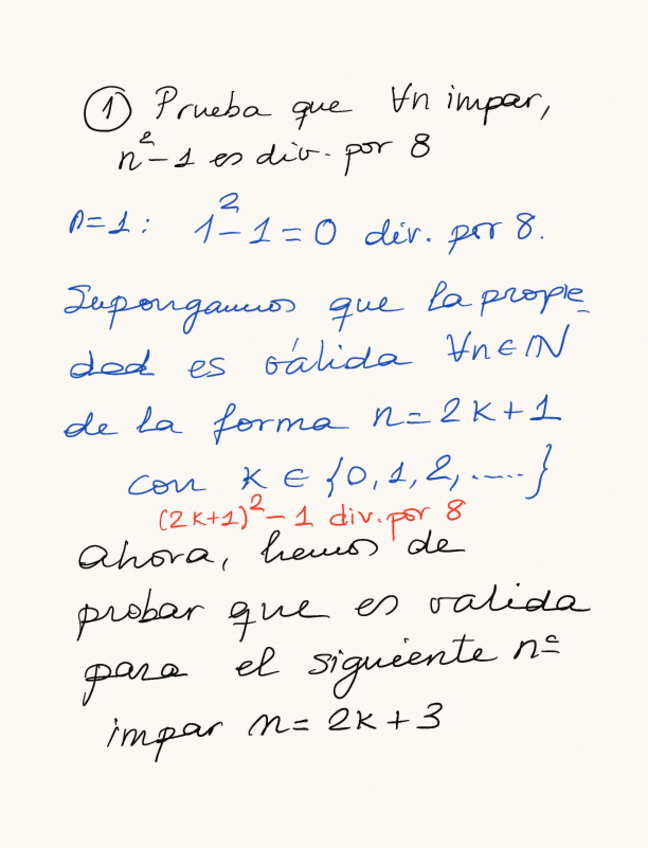 ① Prueba que ∀n impar,
n²-1 es div. por 8
n=1: 1²-1=0 div. por 8.
Supongamos que la propie-
dad es válida ∀n∈ℕ
de la forma n=2k+1
con k ∈ {0,1,2,.....}
(2k+1)²-1 div. por 8
Ahora, hemos de
probar que es valida
para el siguiente nº
impar n=2k+3